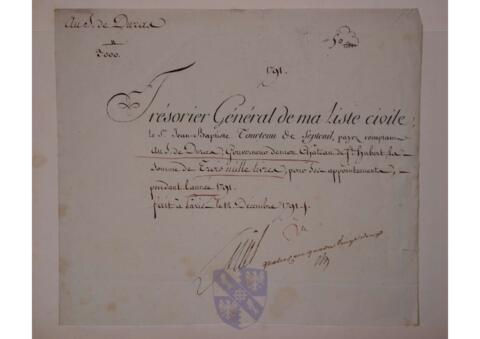 Au S. de Duras
3000.
1791.
Trésorier Général de ma liste civile,
le Sr. Jean-Baptiste Tourteau de Septeuil, payez comptant
Au S. de Duras, Gouverneur de mon Château de St. hubert, la
somme de Trois mille livres, pour ses appointements,
pendant l'année 1791.
fait à Paris le 14 Décembre 1791.
Louis